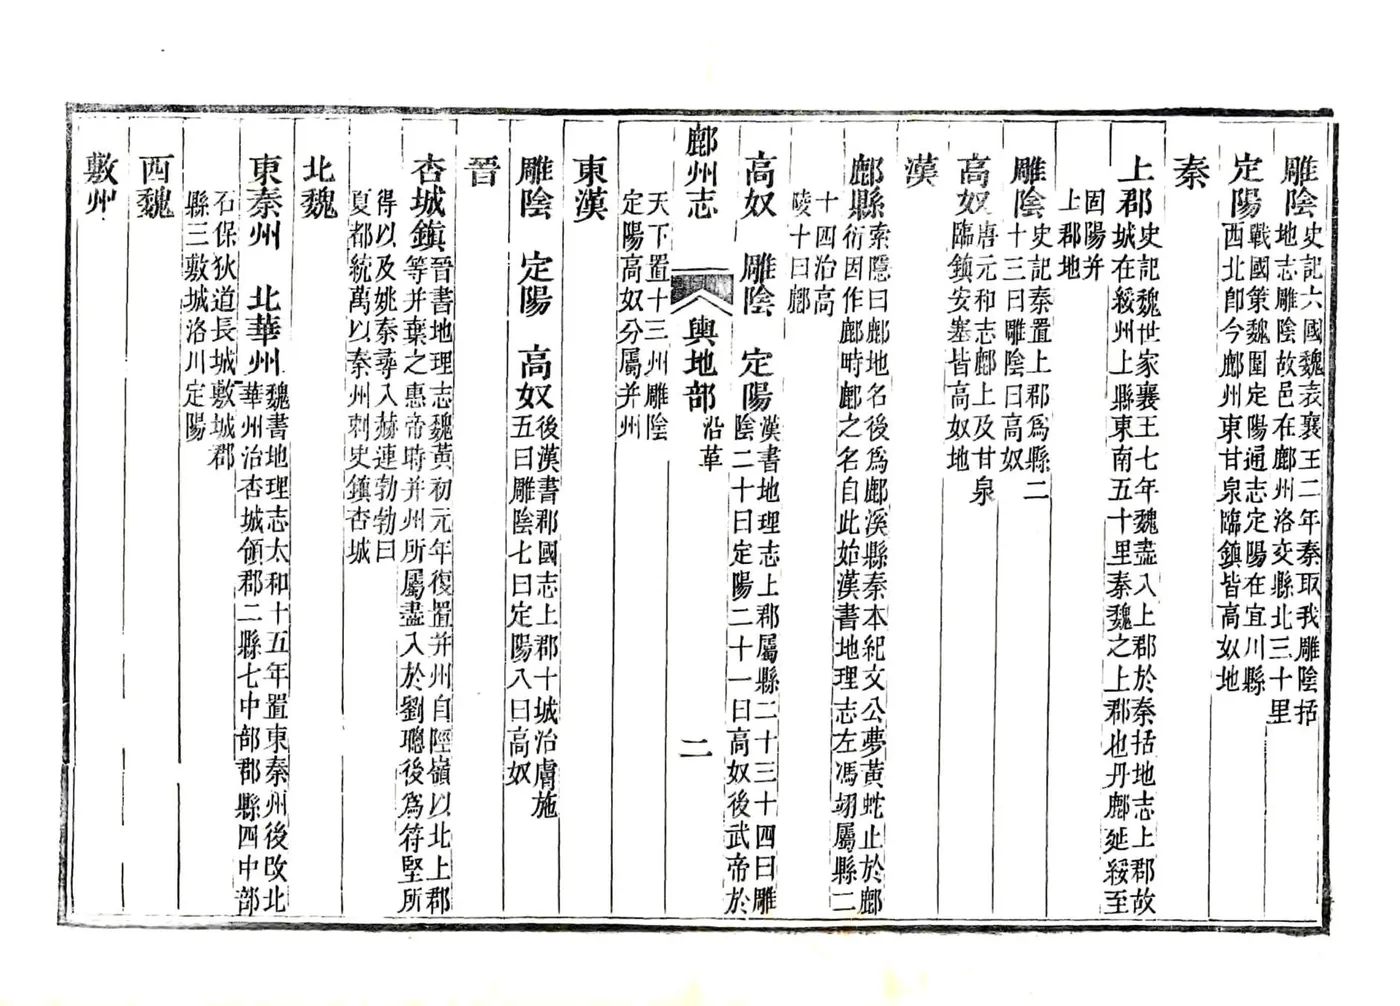 雕陰史記六國魏表襄王二年秦取我雕陰括
地志雕陰故邑在鄜州洛交縣北三十里
定陽戰國策魏圍定陽通志定陽在宜川縣
西北卽今鄜州東甘泉臨鎮皆高奴地
秦
上郡史記魏世家襄王七年魏盡入上郡於秦括地志上郡故
城在綏州上縣東南五十里秦魏之上郡也丹鄜延綏至
固陽并
上郡地
雕陰史記秦置上郡爲縣二
十三曰雕陰曰高奴
高奴唐元和志鄜上及甘泉
臨鎮安塞皆高奴地
漢
鄜縣索隱曰鄜地名後爲鄜溪縣秦本紀文公夢黃蛇止於鄜
衍因作鄜畤鄜之名自此始漢書地理志左馮翊屬縣二
十四治高
陵十曰鄜
高奴 雕陰 定陽漢書地理志上郡屬縣二十三十四曰雕
陰二十曰定陽二十一曰高奴後武帝於
鄜州志 輿地部 沿革 二
天下置十三州雕陰
定陽高奴分屬并州
東漢
雕陰 定陽 高奴後漢書郡國志上郡十城治膚施
五曰雕陰七曰定陽八曰高奴
晉
杏城鎮晉書地理志魏黃初元年復置并州自陘嶺以北上郡
等并棄之惠帝時并州所屬盡入於劉聰後爲符堅所
得以及姚秦尋入赫連勃勃曰
夏都統萬以秦州刺史鎮杏城
北魏
東秦州 北華州魏書地理志太和十五年置東秦州後改北
華州治杏城領郡二縣七中部郡縣四中部
石保狄道長城敷城郡
縣三敷城洛川定陽
西魏
敷州